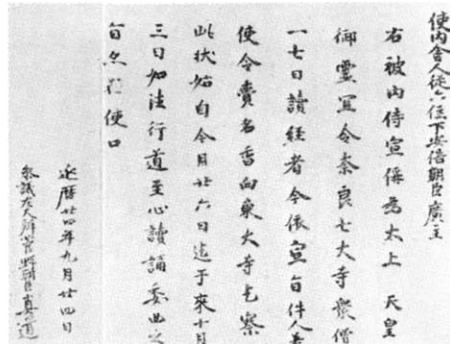 使内舎人従六位下安倍朝臣廣主
右被内侍宣偁為太上 天皇
御霊冝令奈良七大寺衆僧
一七日讀経者今依宣旨件人差
使令賷名香向東大寺乞察
此状始自今月廿六日迄于來十月
三日如法行道至心讀誦委曲之
旨 使口
延暦廿四年九月廿四日
参議左大辨菅野朝臣真道